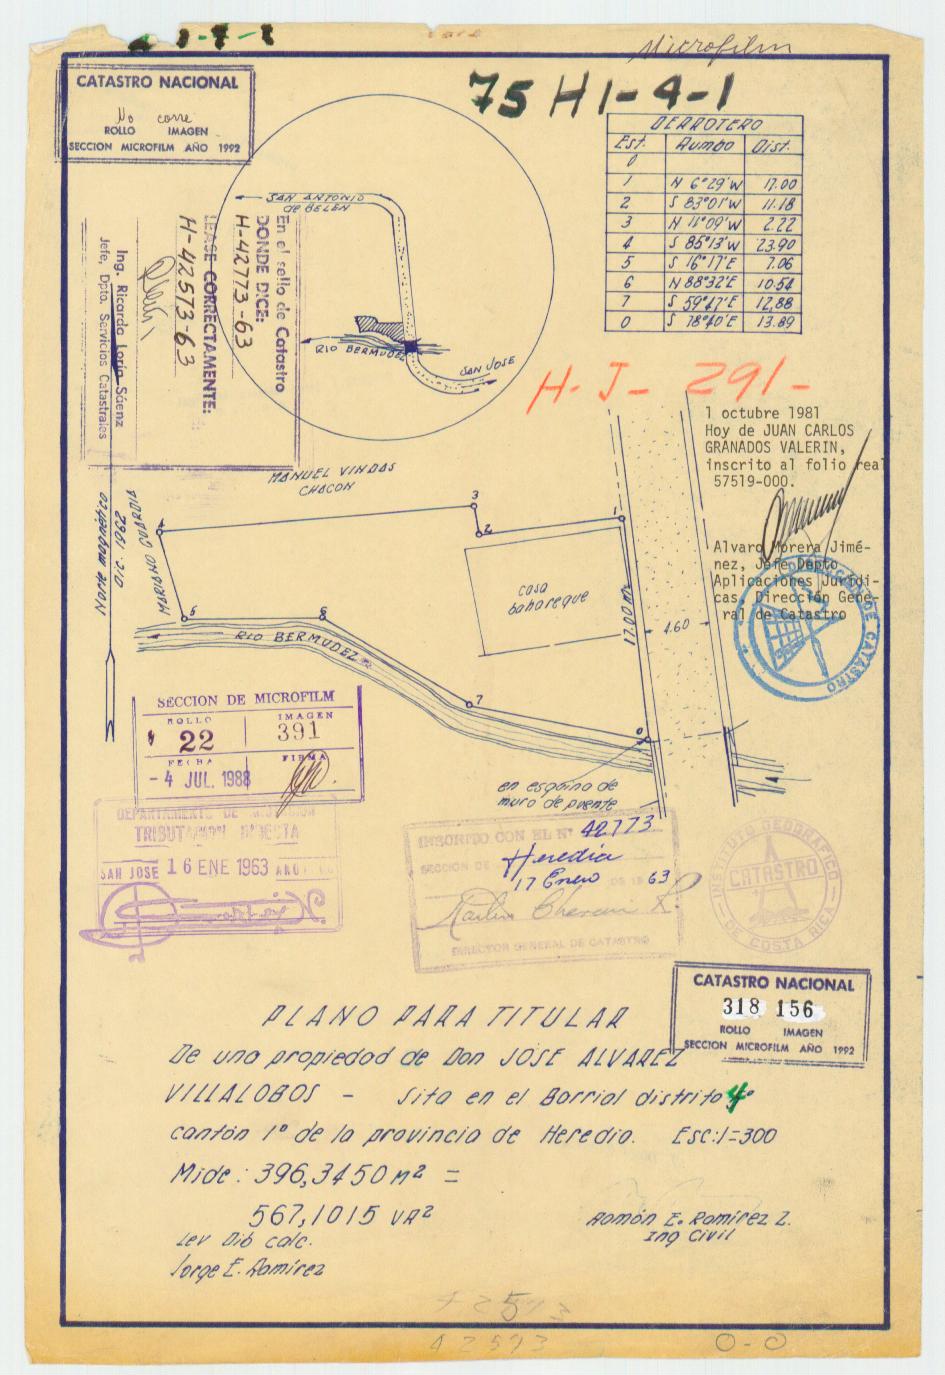 Microfilm
75 H1-4-1
CATASTRO NACIONAL
No corre
ROLLO IMAGEN
SECCION MICROFILM AÑO 1992
DERROTERO
Est. Rumbo Dist.
0
1 N 6°29'W 17.00
2 S 83°01'W 11.18
3 N 11°09'W 2.22
4 S 85°13'W 23.90
5 S 16°17'E 7.06
6 N 88°32'E 10.54
7 S 59°47'E 12,88
0 S 78°40'E 13.89
SAN ANTONIO
de BELEN
RIO BERMUDEZ
SAN JOSE
En el sello de Catastro
DONDE DICE:
H-42773-63
LEASE CORRECTAMENTE:
H-42573-63
Ing. Ricardo Loría Sáenz
Jefe, Dpto. Servicios Catastrales
H-J- 291-
1 octubre 1981
Hoy de JUAN CARLOS
GRANADOS VALERIN,
inscrito al folio real
57519-000.
Alvaro Morera Jimé-
nez, Jefe Depto
Aplicaciones Jurídi-
cas, Dirección Gene-
ral de Catastro
DE CATASTRO
MANUEL VINDAS
CHACON
MARIANO GUARDIA
Norte magnético
Dic. 1962
1
2
3
4
5
6
7
0
casa
bahareque
17.00 m
4.60
RIO BERMUDEZ
en esquina de
muro de puente
SECCION DE MICROFILM
ROLLO IMAGEN
22 391
FECHA FIRMA
- 4 JUL. 1988
DEPARTAMENTO DE
TRIBUTACION DIRECTA
SAN JOSE 16 ENE 1963
INSCRITO CON EL Nº 42773
SECCION DE Heredia
17 Enero DE 19 63
DIRECTOR GENERAL DE CATASTRO
INSTITUTO GEOGRAFICO
CATASTRO
DE COSTA RICA
CATASTRO NACIONAL
318 156
ROLLO IMAGEN
SECCION MICROFILM AÑO 1992
PLANO PARA TITULAR
De una propiedad de Don JOSE ALVAREZ
VILLALOBOS - Sita en el Barrial distrito 4º
cantón 1º de la provincia de Heredia. Esc:1=300
Mide: 396,3450 m² =
567,1015 VR²
Lev Dib calc.
Jorge E. Ramírez
Ramón E. Ramírez Z.
Ing Civil
42573
0-0